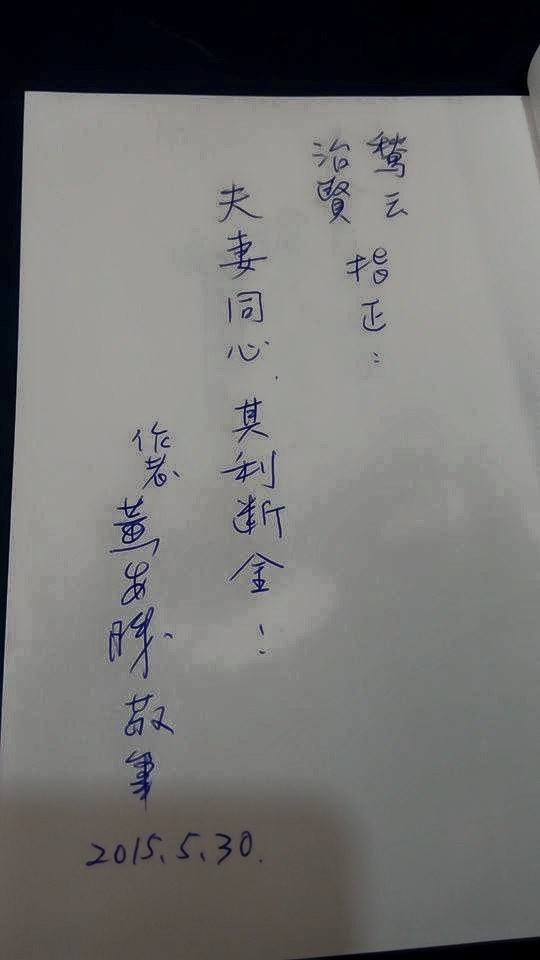 云
治賢
指正：
夫妻同心，其利断金！
作者 黃安勝 敬
2015.5.30.